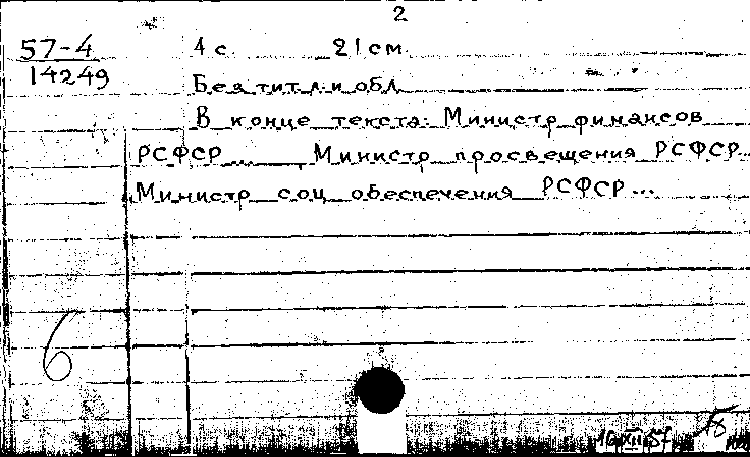 2
57-4
14249
1 с. 21 см.
Без тит. л. и обл.
В конце текста: Министр финансов
РСФСР ... Министр просвещения РСФСР...
Министр соц. обеспечения РСФСР...
6